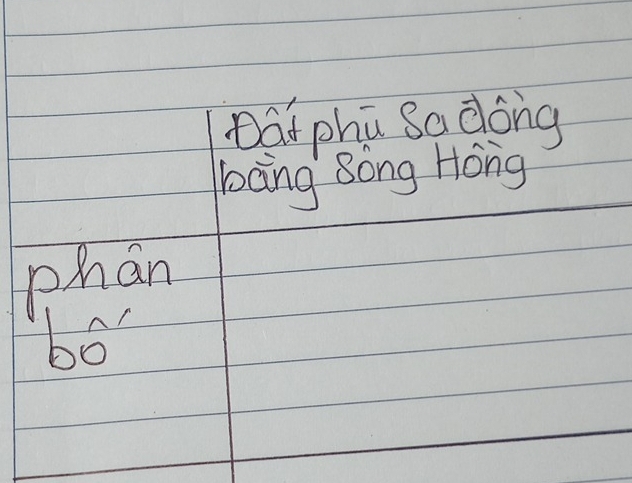 Đất phù sa đồng
bằng sông Hồng
phân
bố